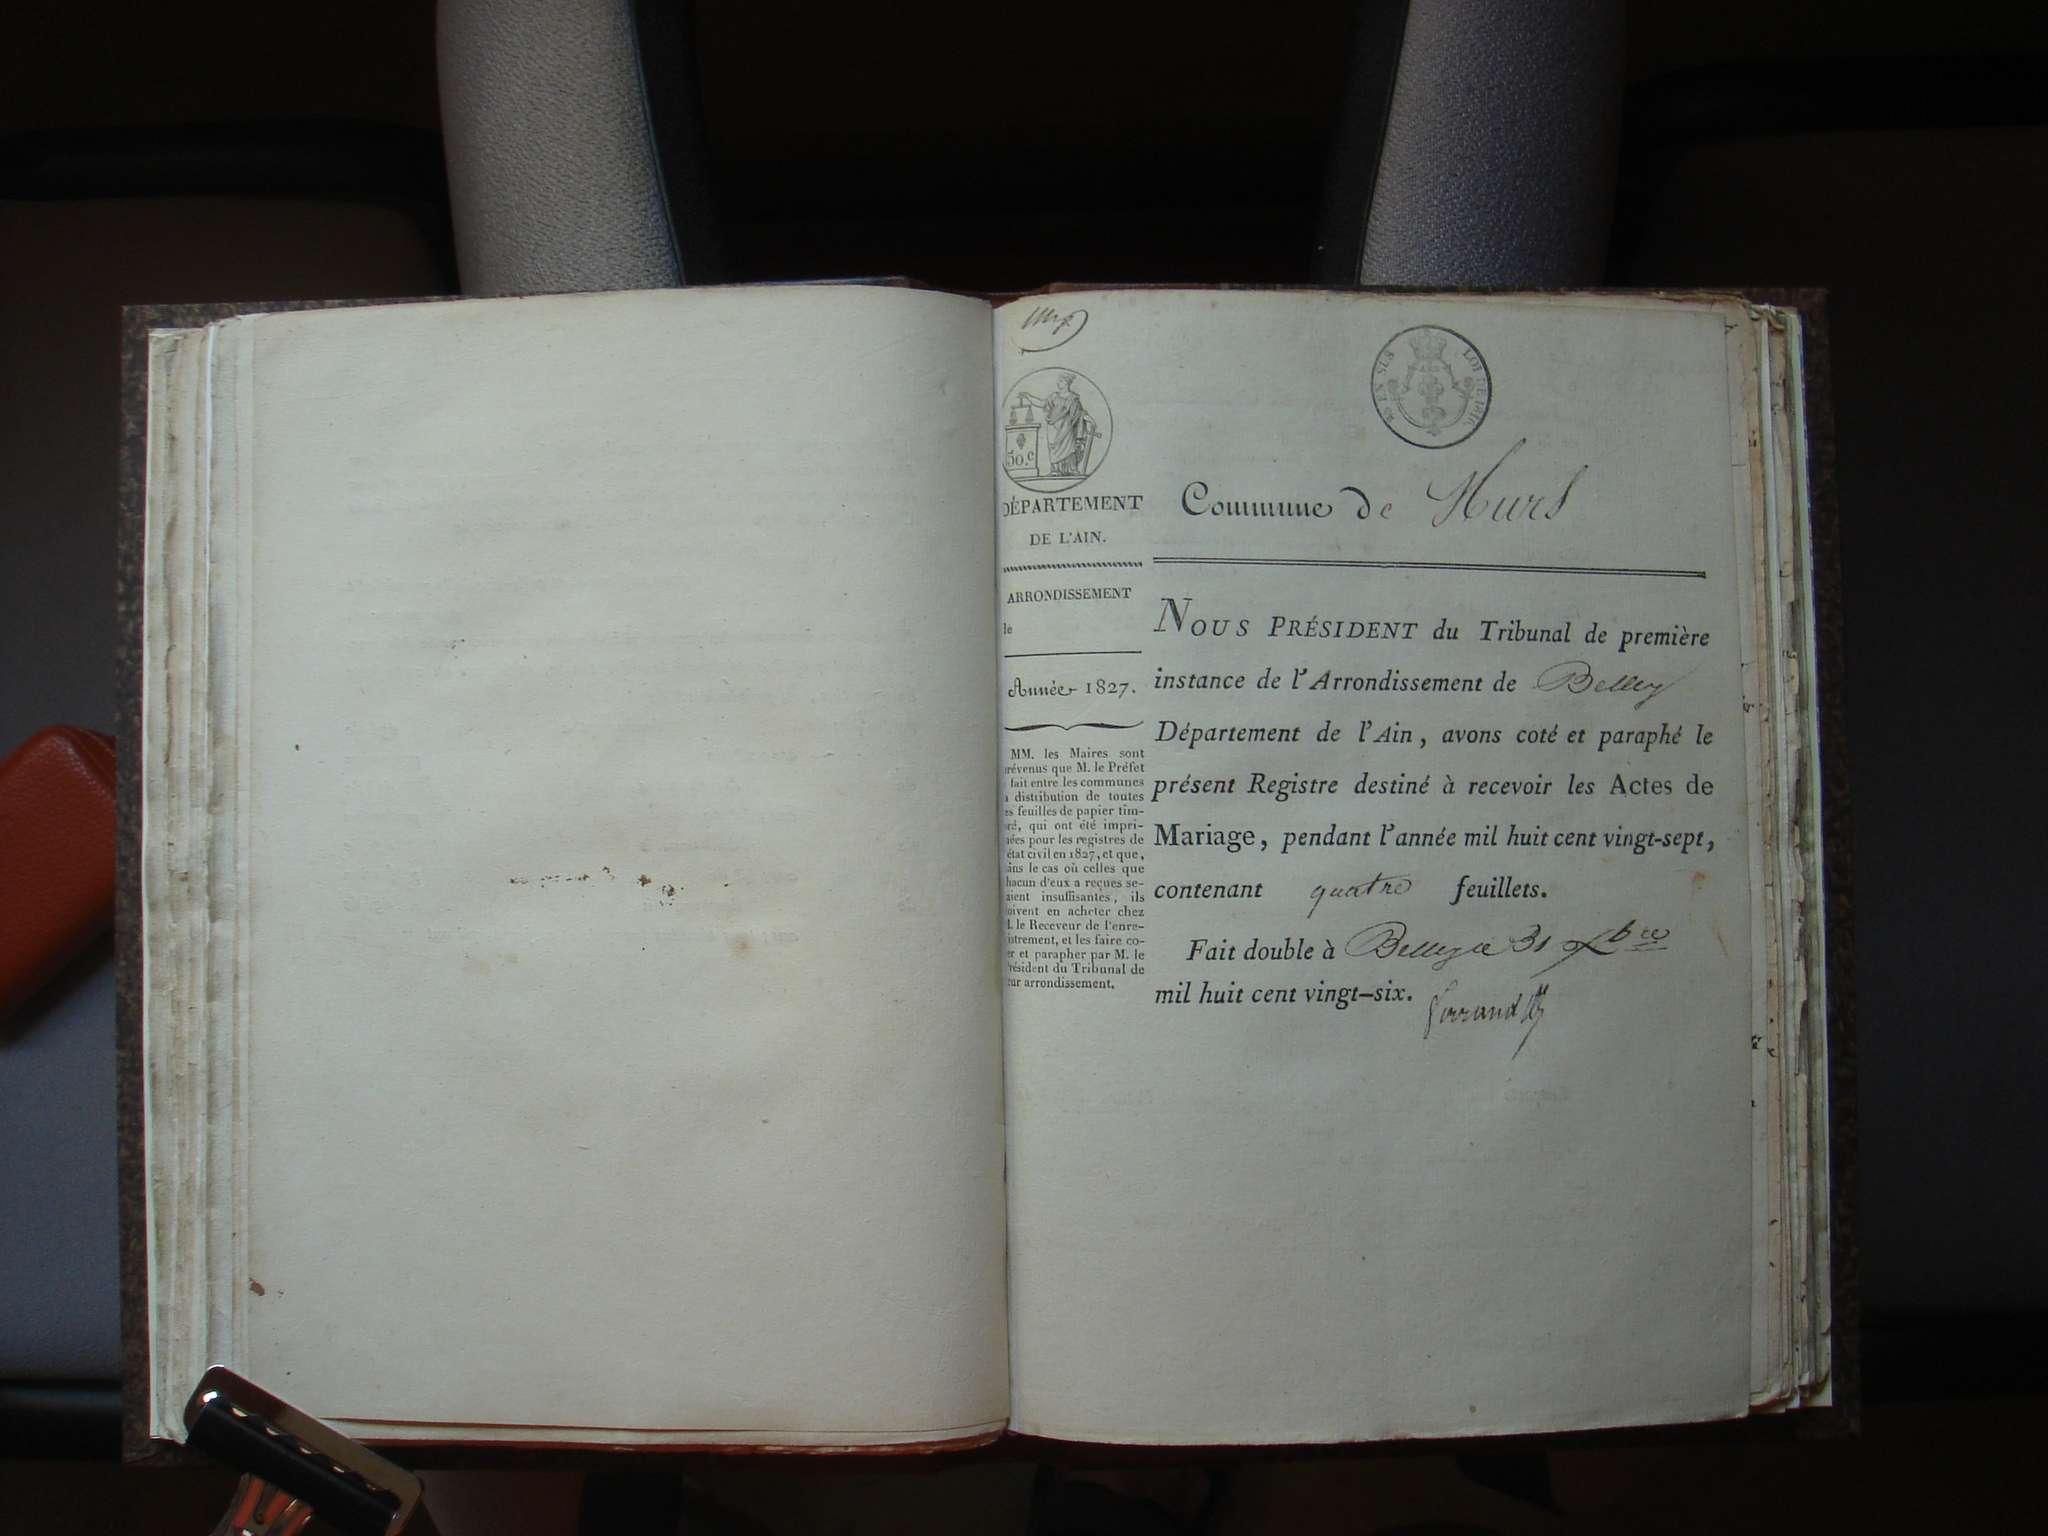 50.c
EN SUS
LOI DE 1816
DÉPARTEMENT
DE L'AIN.
ARRONDISSEMENT
de
Année 1827.
MM. les Maires sont
prévenus que M. le Préfet
fait entre les communes
la distribution de toutes
les feuilles de papier tim-
bré, qui ont été impri-
mées pour les registres de
état civil en 1827, et que,
dans le cas où celles que
chacun d'eux a reçues se-
raient insuffisantes, ils
doivent en acheter chez
M. le Receveur de l'enre-
gistrement, et les faire co-
ter et parapher par M. le
Président du Tribunal de
leur arrondissement.
Commune de Murs
NOUS PRÉSIDENT du Tribunal de première
instance de l'Arrondissement de Belley
Département de l'Ain, avons coté et paraphé le
présent Registre destiné à recevoir les Actes de
Mariage, pendant l'année mil huit cent vingt-sept,
contenant quatre feuillets.
Fait double à Belley ce 31 Xbre
mil huit cent vingt-six.